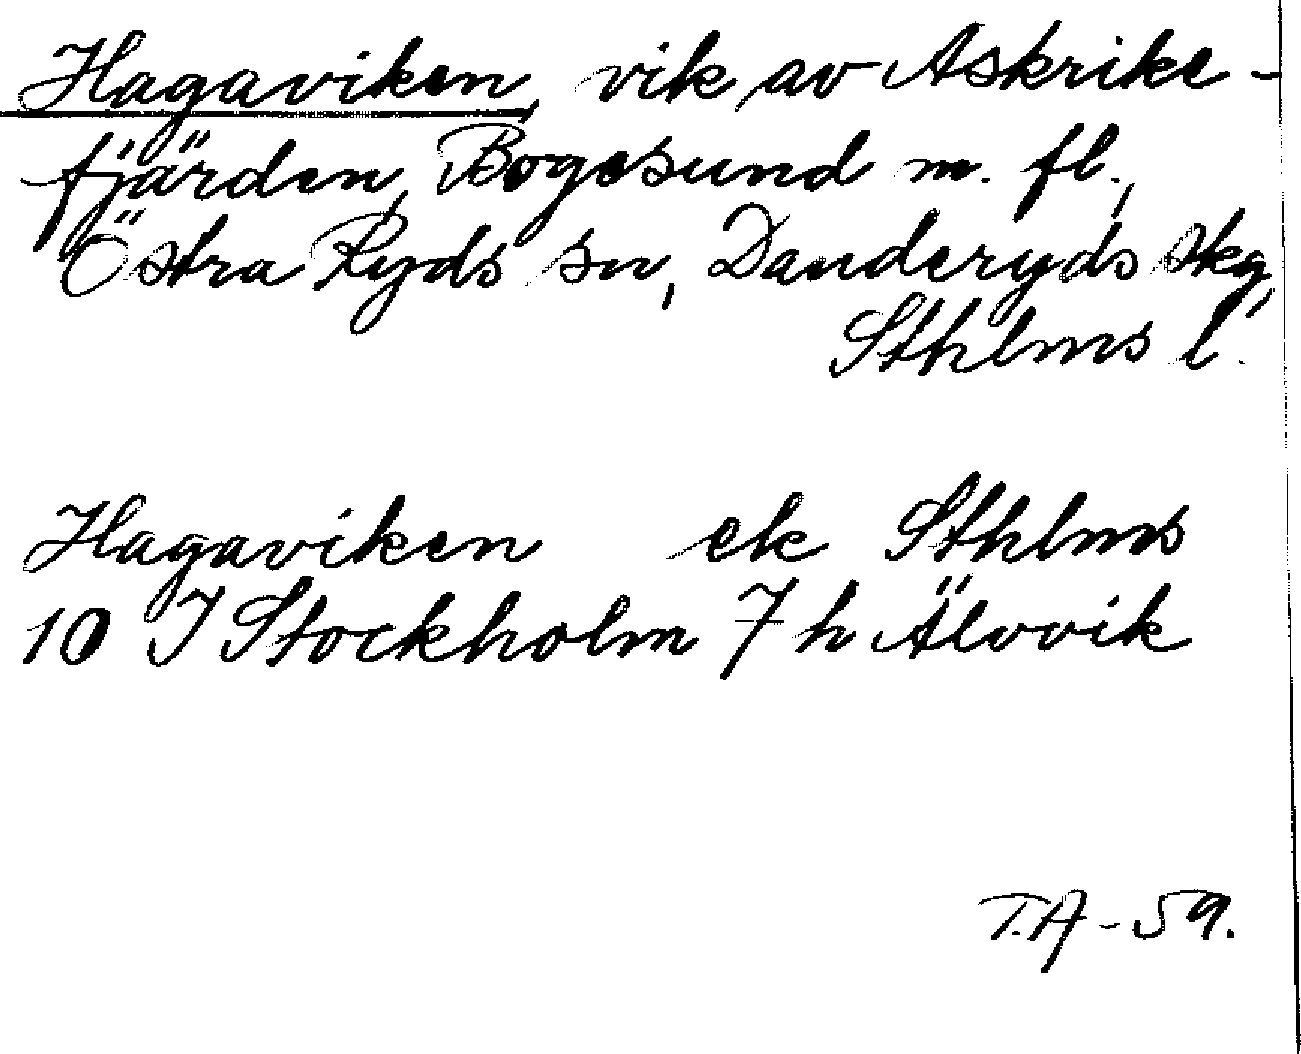 Hagaviken, vik av Askrike-
fjärden, Bogesund m. fl.,
Östra Ryds sn, Danderyds skg,
Sthlms l.
Hagaviken ek Sthlms
10 I Stockholm 7 h Älvvik
T.A - 59.